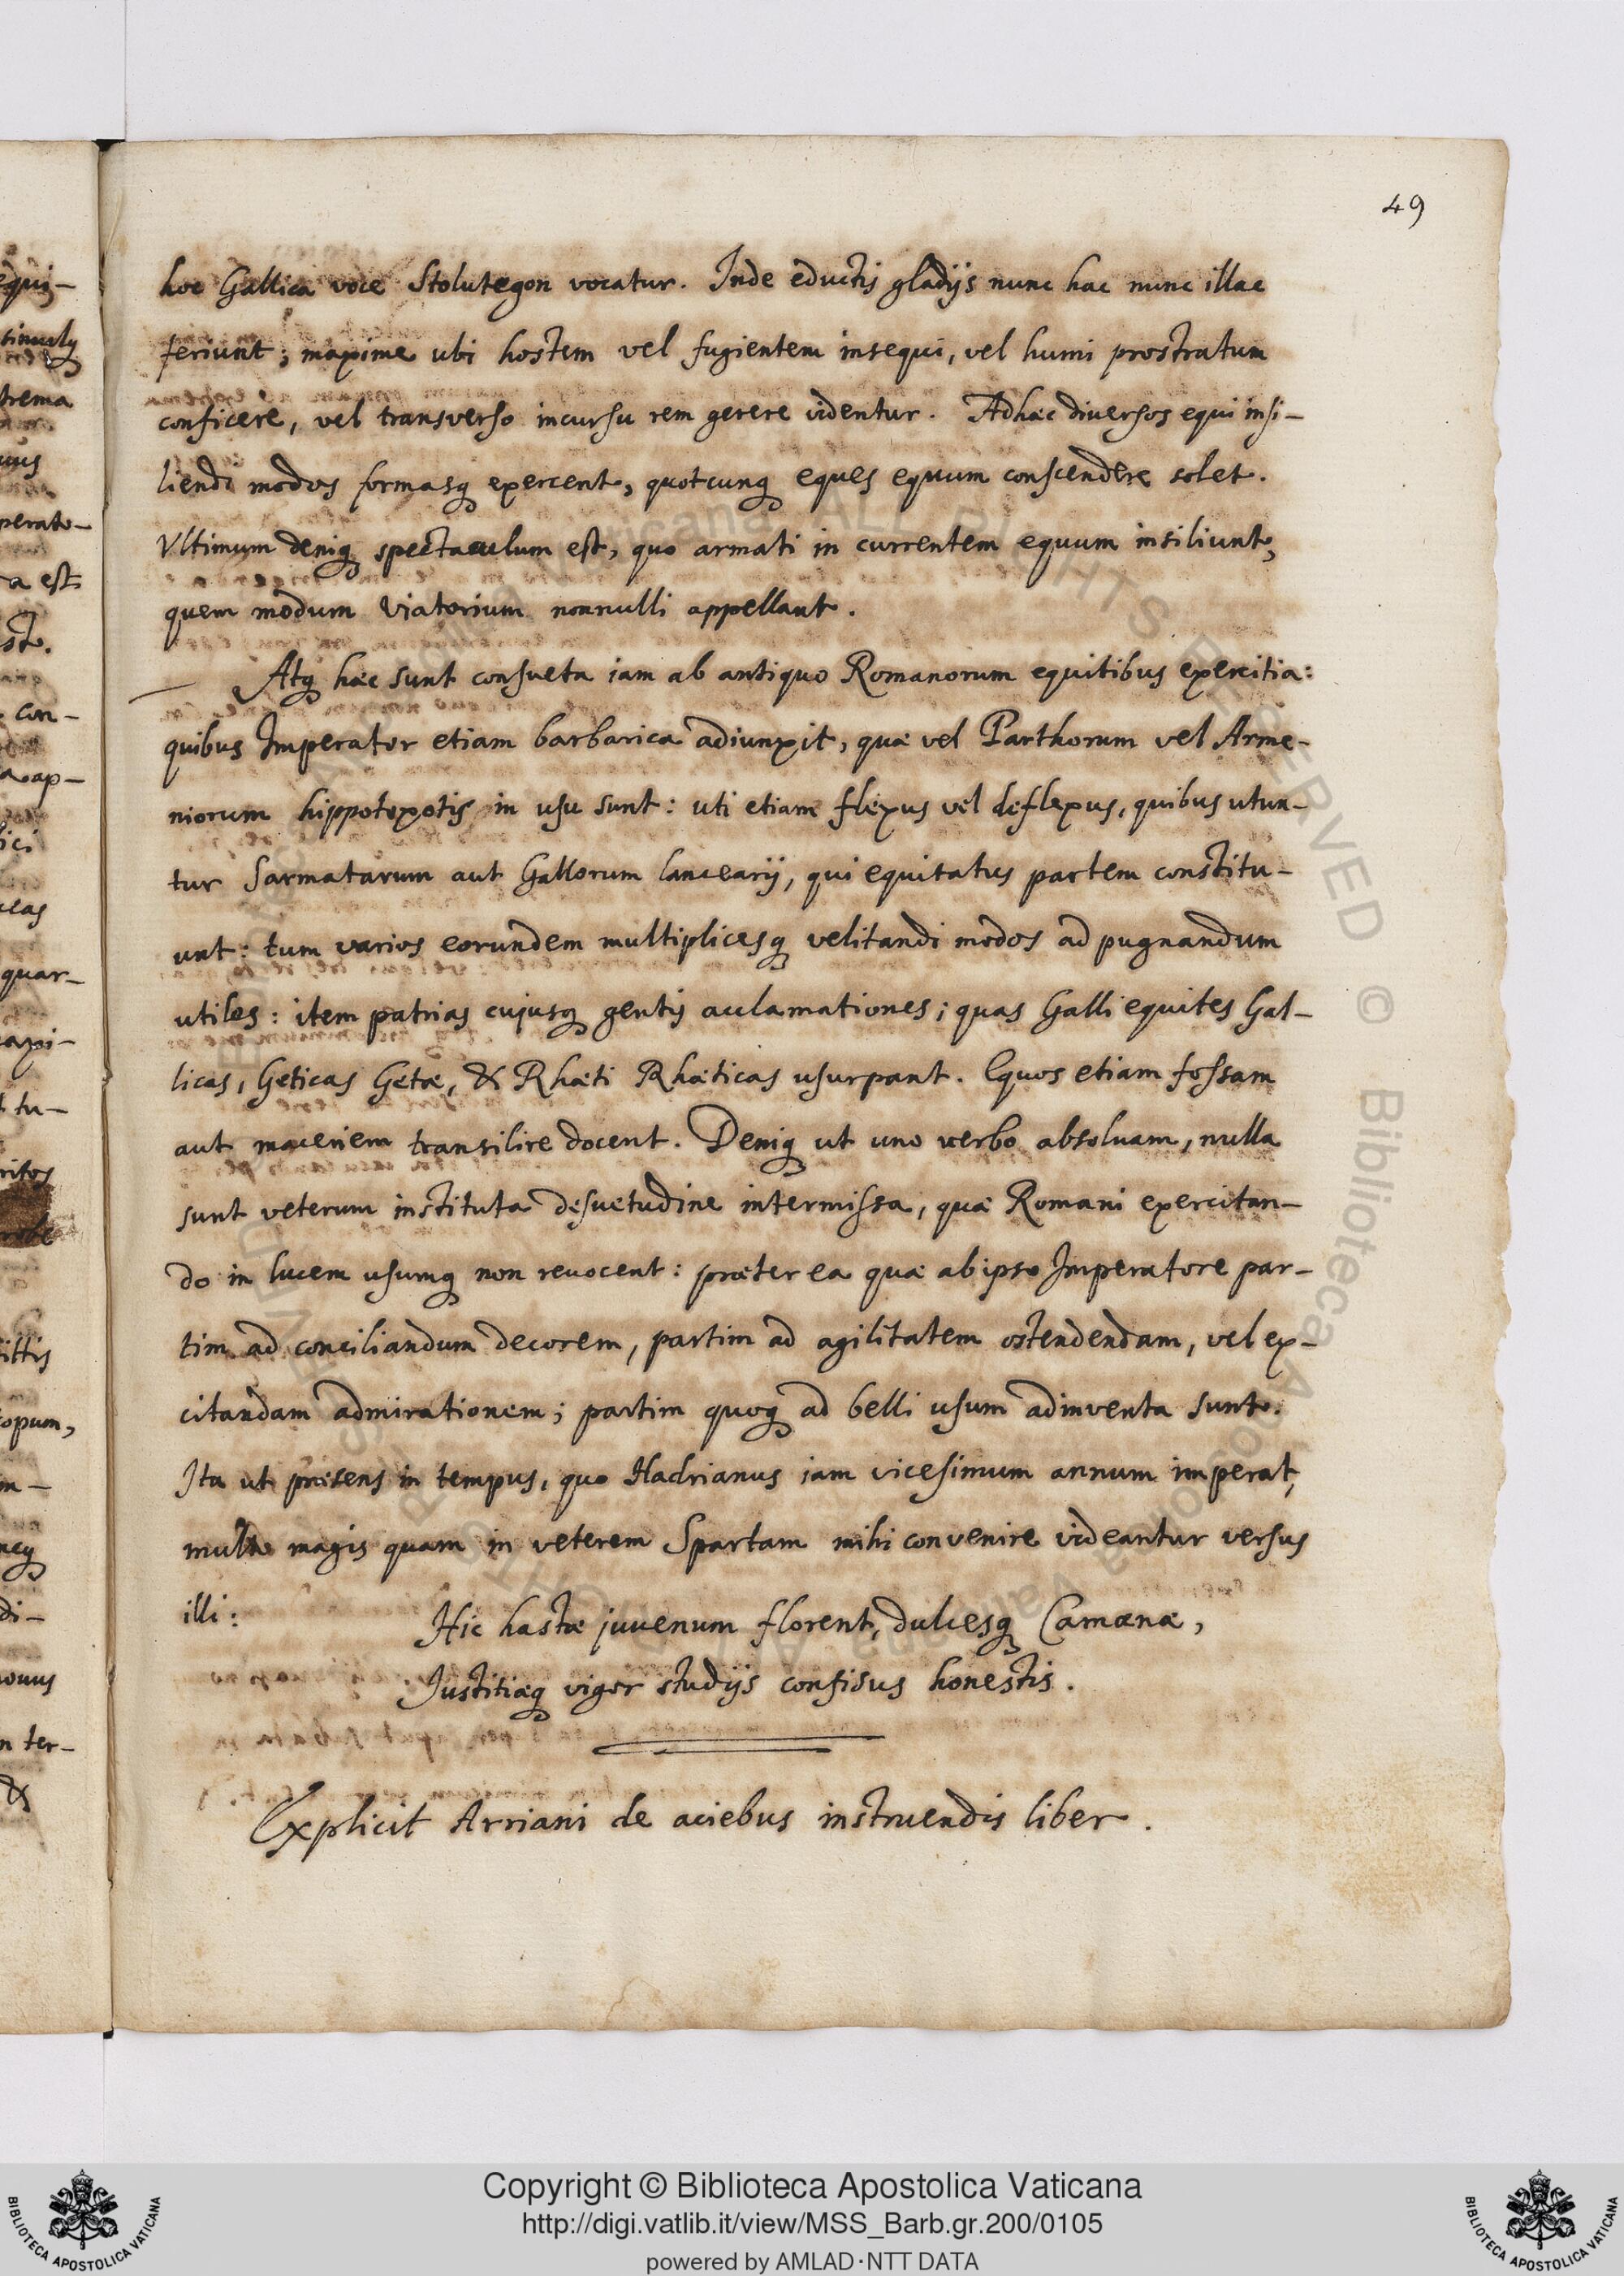 49
hoc Gallica voce Stolutegon vocatur. Inde eductis gladijs nunc hac nunc illac
feriunt; maxime ubi hostem vel fugientem insequi, vel humi prostratum
conficere, vel transverso incursu rem gerere videntur. Ad hæc diversos equi insi-
liendi modos formasq exercent, quotcunq eques equum conscendere solet.
Ultimum deniq spectaculum est, quo armati in currentem equum insiliunt,
quem modum Viatorium nonnulli appellant.
Atq hæc sunt consueta iam ab antiquo Romanorum equitibus exercitia:
quibus Imperator etiam barbarica adiunxit, quæ vel Parthorum vel Arme-
niorum hippotoxotis in usu sunt: uti etiam flexus vel deflexus, quibus utun-
tur Sarmatarum aut Gallorum lancearij, qui equitatus partem constitu-
unt: tum varios eorundem multiplicesq velitandi modos ad pugnandum
utiles: item patrias cujusq gentis acclamationes; quas Galli equites Gal-
licas, Geticas Getæ, & Rhæti Rhæticas usurpant. Equos etiam fossam
aut maceriem transilire docent. Deniq ut uno verbo absolvam, nulla
sunt veterum instituta desuetudine intermissa, quæ Romani exercitan-
do in lucem usumq non revocent: præter ea quæ ab ipso Imperatore par-
tim ad conciliandum decorem, partim ad agilitatem ostendendam, vel ex-
citandam admirationem; partim quoq ad belli usum adinventa sunt.
Ita ut præsens in tempus, quo Hadrianus iam vicesimum annum imperat,
multo magis quam in veterem Spartam mihi convenire videantur versus
illi:
Hic hastæ juvenum florent, dulcesq Camœnæ,
Justitiæq vigor studijs confisus honestis.
Explicit Arriani de aciebus instruendis liber.
Copyright © Biblioteca Apostolica Vaticana
http://digi.vatlib.it/view/MSS_Barb.gr.200/0105
powered by AMLAD·NTT DATA
BIBLIOTECA APOSTOLICA VATICANA
BIBLIOTECA APOSTOLICA VATICANA